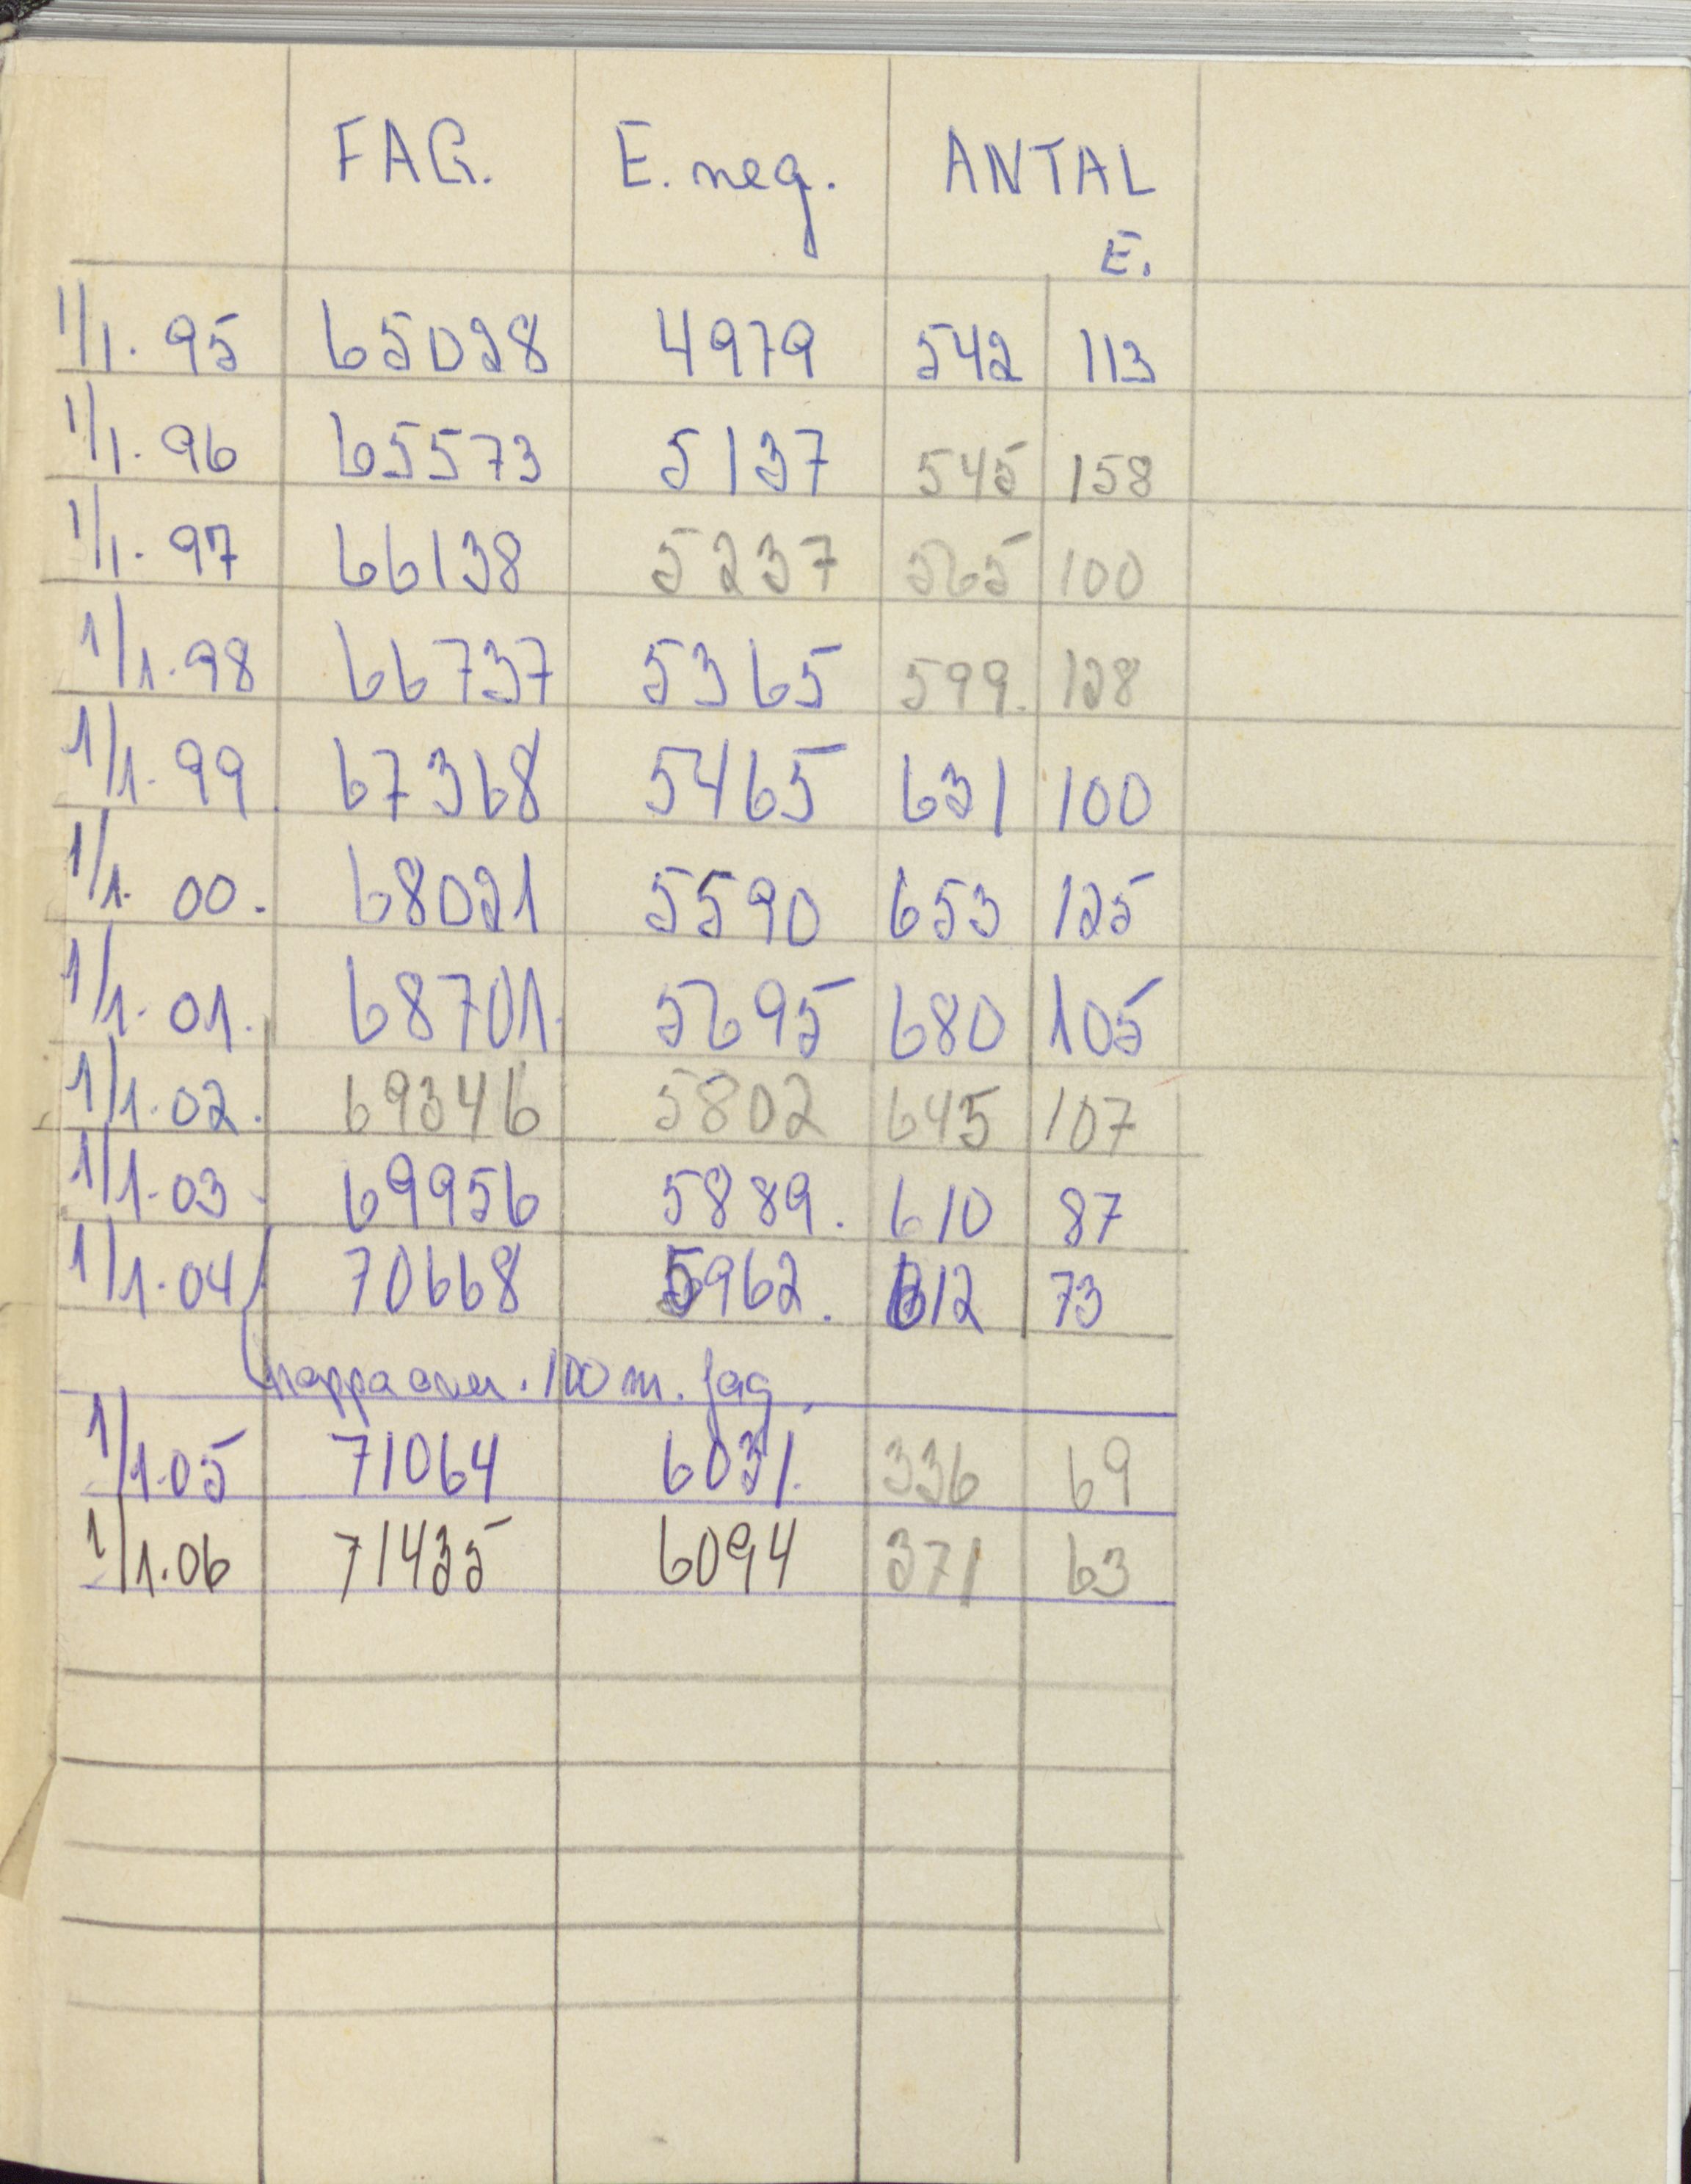 FAG. E. neg. ANTAL
E.
1/1. 95 65028 4979 542 113
1/1. 96 65573 5137 545 158
1/1. 97 66138 5237 565 100
1/1. 98 66737 5365 599. 128
1/1. 99 67368 5465 631 100
1/1. 00. 68021 5590 653 125
1/1. 01. 68701. 5695 680 105
1/1. 02. 69346 5802 645 107
1/1. 03 69956 5889. 610 87
1/1. 04 70668 5962. 612 73
100 m. fag.
1/1. 05 71064 6031. 336 69
1/1. 06 71435 6094 371 63